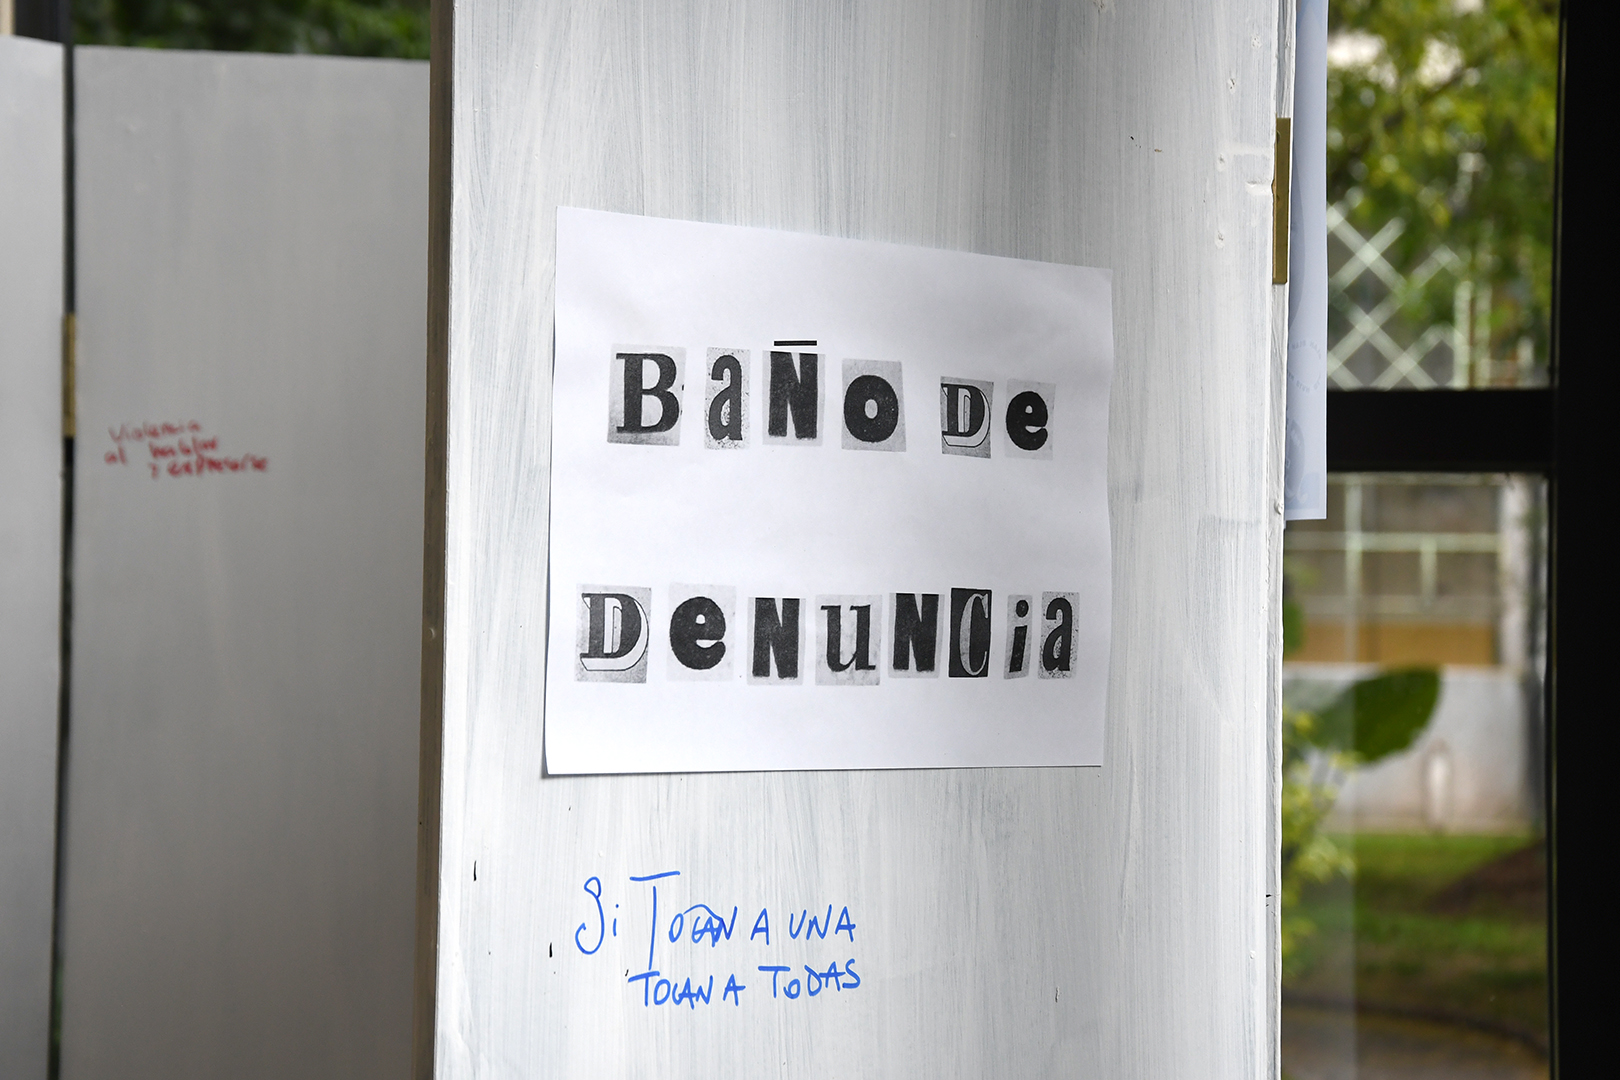 Violencia
al hablar
y expresarse
BaÑo De
DeNuNCia
Si TOCAN A UNA
TOCAN A TODAS